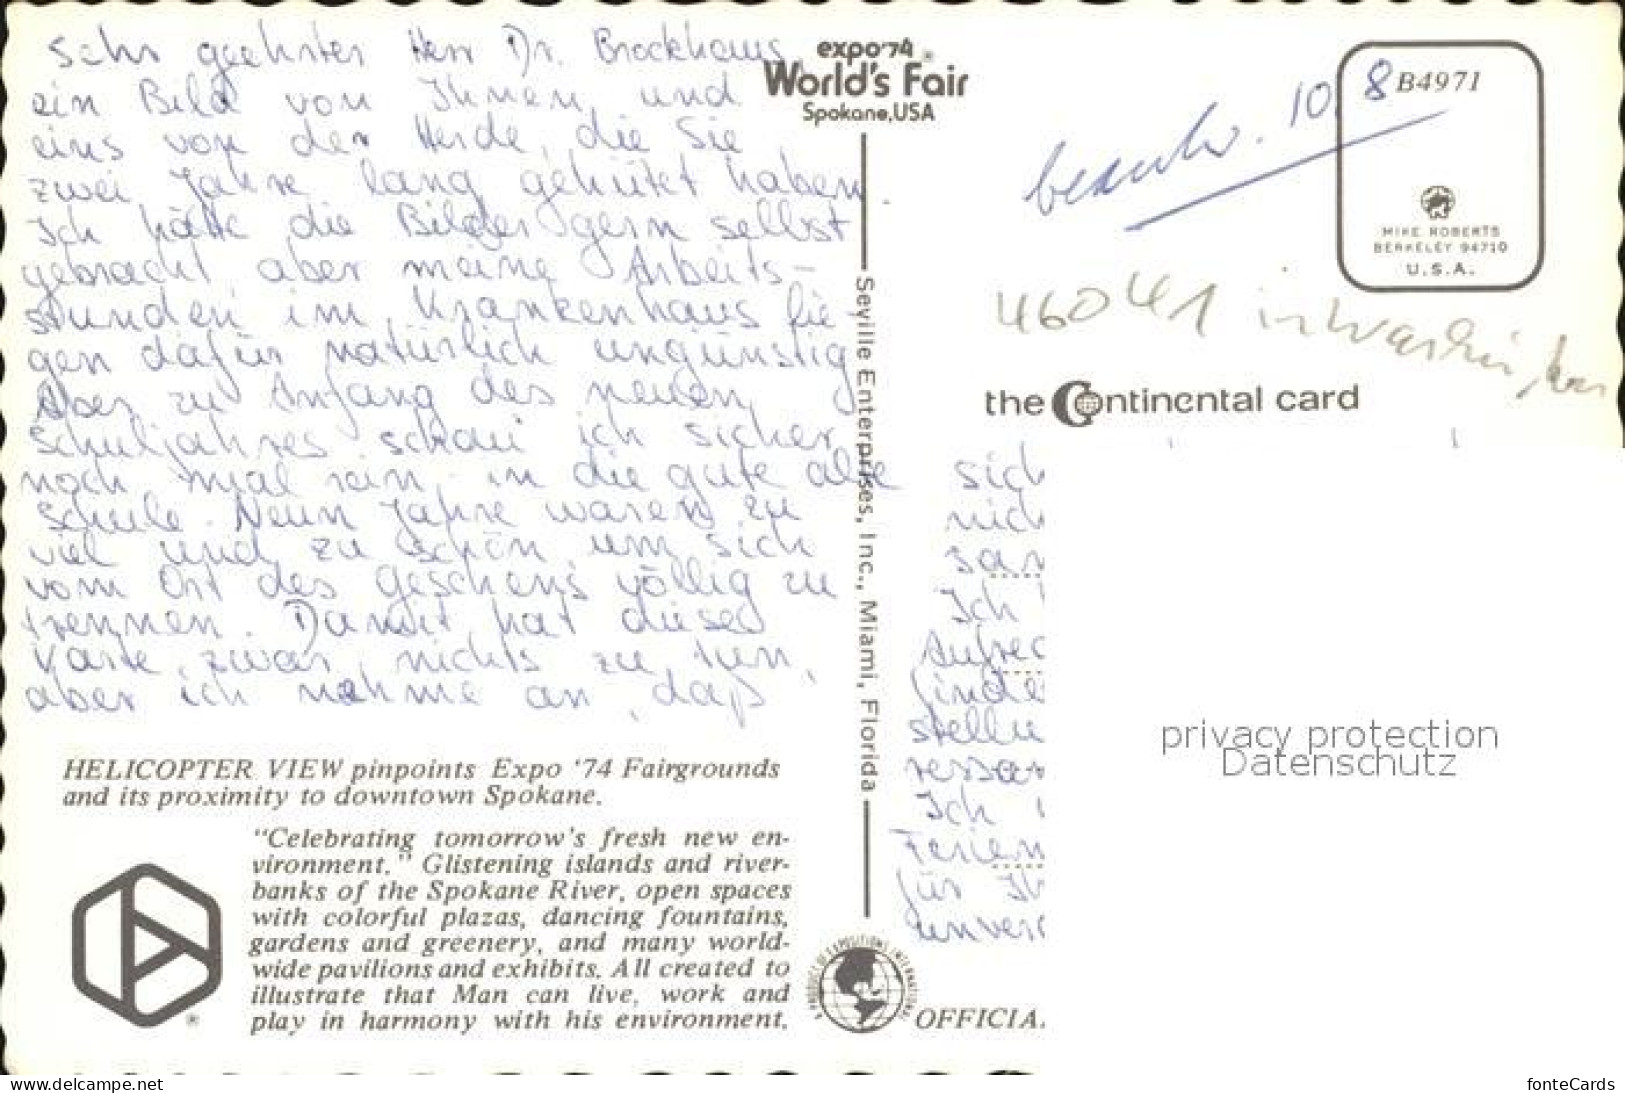 Sehr geehrter Herr Dr. Brockhaus,
ein Bild von Ihnen und
eins von der Herde, die Sie
zwei Jahre lang gehütet haben.
Ich hätte die Bilder gern selbst
gebracht aber meine Arbeits-
stunden im Krankenhaus lie
gen dafür natürlich ungünstig
Aber zu Anfang des neuen
Schuljahres schau ich sicher
noch mal rein in die gute alte
Schule. Neun Jahre waren zu
viel und zu schön, um sich
vom Ort des Geschehens völlig zu
trennen. Damit hat diese
Karte zwar nichts zu tun,
aber ich nehme an, daß
HELICOPTER VIEW pinpoints Expo '74 Fairgrounds
and its proximity to downtown Spokane.
"Celebrating tomorrow's fresh new en-
vironment." Glistening islands and river-
banks of the Spokane River, open spaces
with colorful plazas, dancing fountains,
gardens and greenery, and many world-
wide pavilions and exhibits. All created to
illustrate that Man can live, work and
play in harmony with his environment.
expo'74
World's Fair
Spokane, USA
Seville Enterprises, Inc., Miami, Florida
10. 8
B4971
MIKE ROBERTS
BERKELEY 94710
U.S.A.
46041 in Washington
the Continental card
sich
nich
san
Ich
Aufre
finde
stellu
ressan
Ich
Ferien
für Ih
unver
OFFICIA
privacy protection
Datenschutz
www.delcampe.net
fonteCards